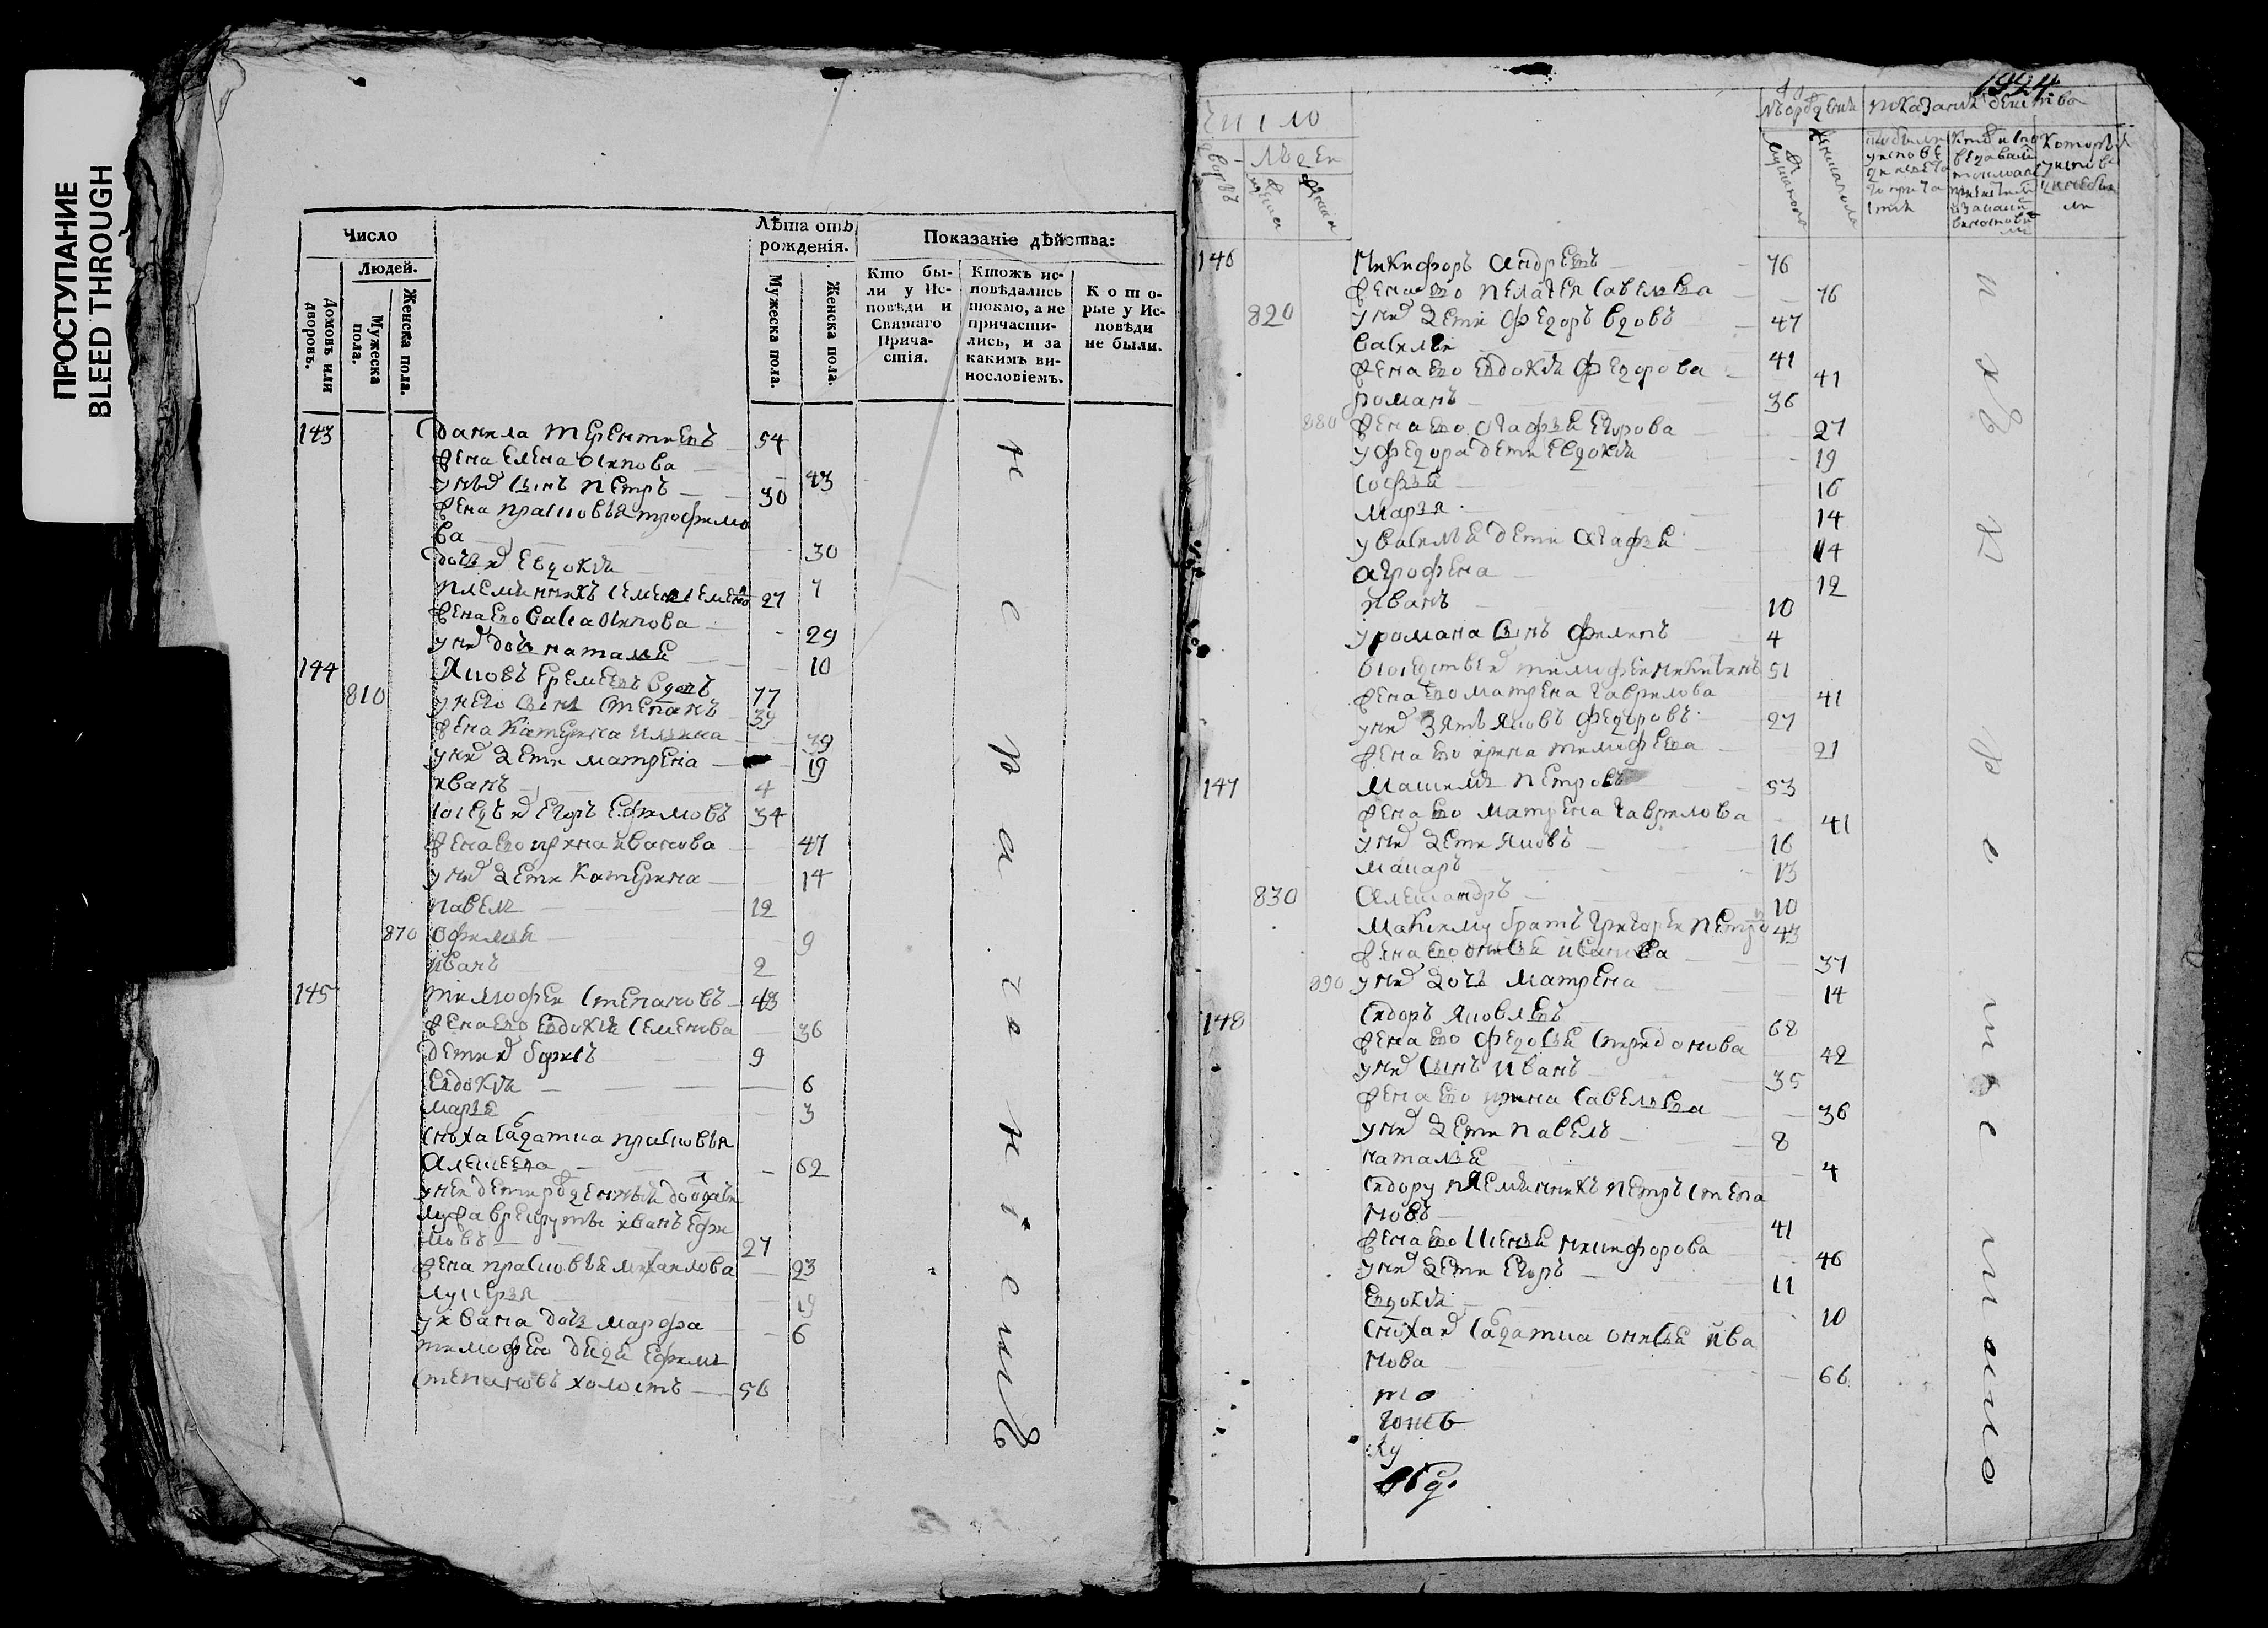 ПРОСТУПАНИЕ
BLEED THROUGH
Число
Людей.
Домовъ или дворовъ.
Мужеска пола.
Женска пола.
Лѣта отъ рожденія.
Мужеска пола.
Женска пола.
Показаніе дѣйства:
Кто были у Исповѣди и Святаго Причастія.
Ктожъ исповѣдались токмо, а не причастились, и за какимъ винословіемъ.
Которые у Исповѣди не были.
143 данила терентиевъ 54
жена елена осипова 43
у нихъ сынъ петръ 30
жена прасковья трофимо
ва 30
дочь их евдокия 7
племянникъ семен семено 27
жена ево васа осипова 29
у них дочь наталья 10
144 яковъ еремеевъ вдовъ 77
810 у него сынъ степанъ 39
жена катерина ильина 39
у них дети матрена 19
иванъ 4
соседъ их егоръ ефимовъ 34
жена ево ирина иванова 47
у них дети катерина 14
павелъ 12
870 офимья 9
иванъ 2
145 тимофеи степановъ 43
жена ево евдокия семенова 36
дети их борисъ 9
евдокия 6
марья 3
сноха салдатка прасковья
алексеева 62
иванъ ефи
мовъ 27
жена прасковья михаилова 23
лукерья 19
у ивана дочь марфа 6
тимофею дядя ефимъ
степановъ холостъ 56
не раченіемъ
1924
число
дворовъ
людеи
показания деиства
146 никифоръ андреевъ 76
жена ево пелагея савельева 76
820 у них дети федоръ вдовъ 47
василеи 41
жена ево евдокия федорова 41
романъ 36
880 жена ево агафья егорова 27
у федора дети евдокия 19
софья 16
марья 14
у василья дети агафья 14
агрофена 12
иванъ 10
у романа сынъ филипъ 4
в соседстве их тимофеи никитинъ 51
жена ево матрена гаврилова 41
у них зять яковъ федоровъ 27
жена ево ирина тимофеева 21
147 максимъ петровъ 53
жена ево матрена гаврилова 41
у них дети яковъ 16
макаръ 13
830 александръ 10
максиму братъ григореи петро 43
жена ево онисья иванова 37
890 у них дочь матрена 14
148 сидоръ яковлевъ 68
жена ево федосья спиридонова 42
у них сынъ иванъ 35
жена ево ирина савельева 36
у них дети павелъ 8
наталья 4
сидору племянникъ петръ степа
новъ 41
жена ево ксенья никифорова 46
у них дети егоръ 11
евдокия 10
сноха их салдатка онисья ива
нова 66